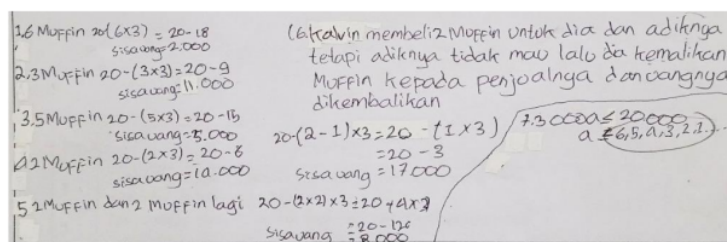 1.6 Muffin 20-(6x3) = 20-18
sisa uang = 2.000
2.3 Muffin 20-(3x3) = 20-9
sisa uang = 11.000
3.5 Muffin 20-(5x3) = 20-15
sisa uang = 5.000
4.2 Muffin 20-(2x3) = 20-6
sisa uang = 14.000
5 2 Muffin dan 2 muffin lagi 20-(2x2)x3 = 20-4x3
= 20-12
sisa uang = 8.000
6. Kalvin membeli 2 Muffin untuk dia dan adiknya
tetapi adiknya tidak mau lalu dia kemalikan
Muffin kepada penjoalnya dan uangnya
dikembalikan
20-(2-1)x3 = 20-(1x3)
= 20-3
sisa uang = 17.000
7. 3000a ≤ 20000
a ≤ 6,5,4,3,2,1